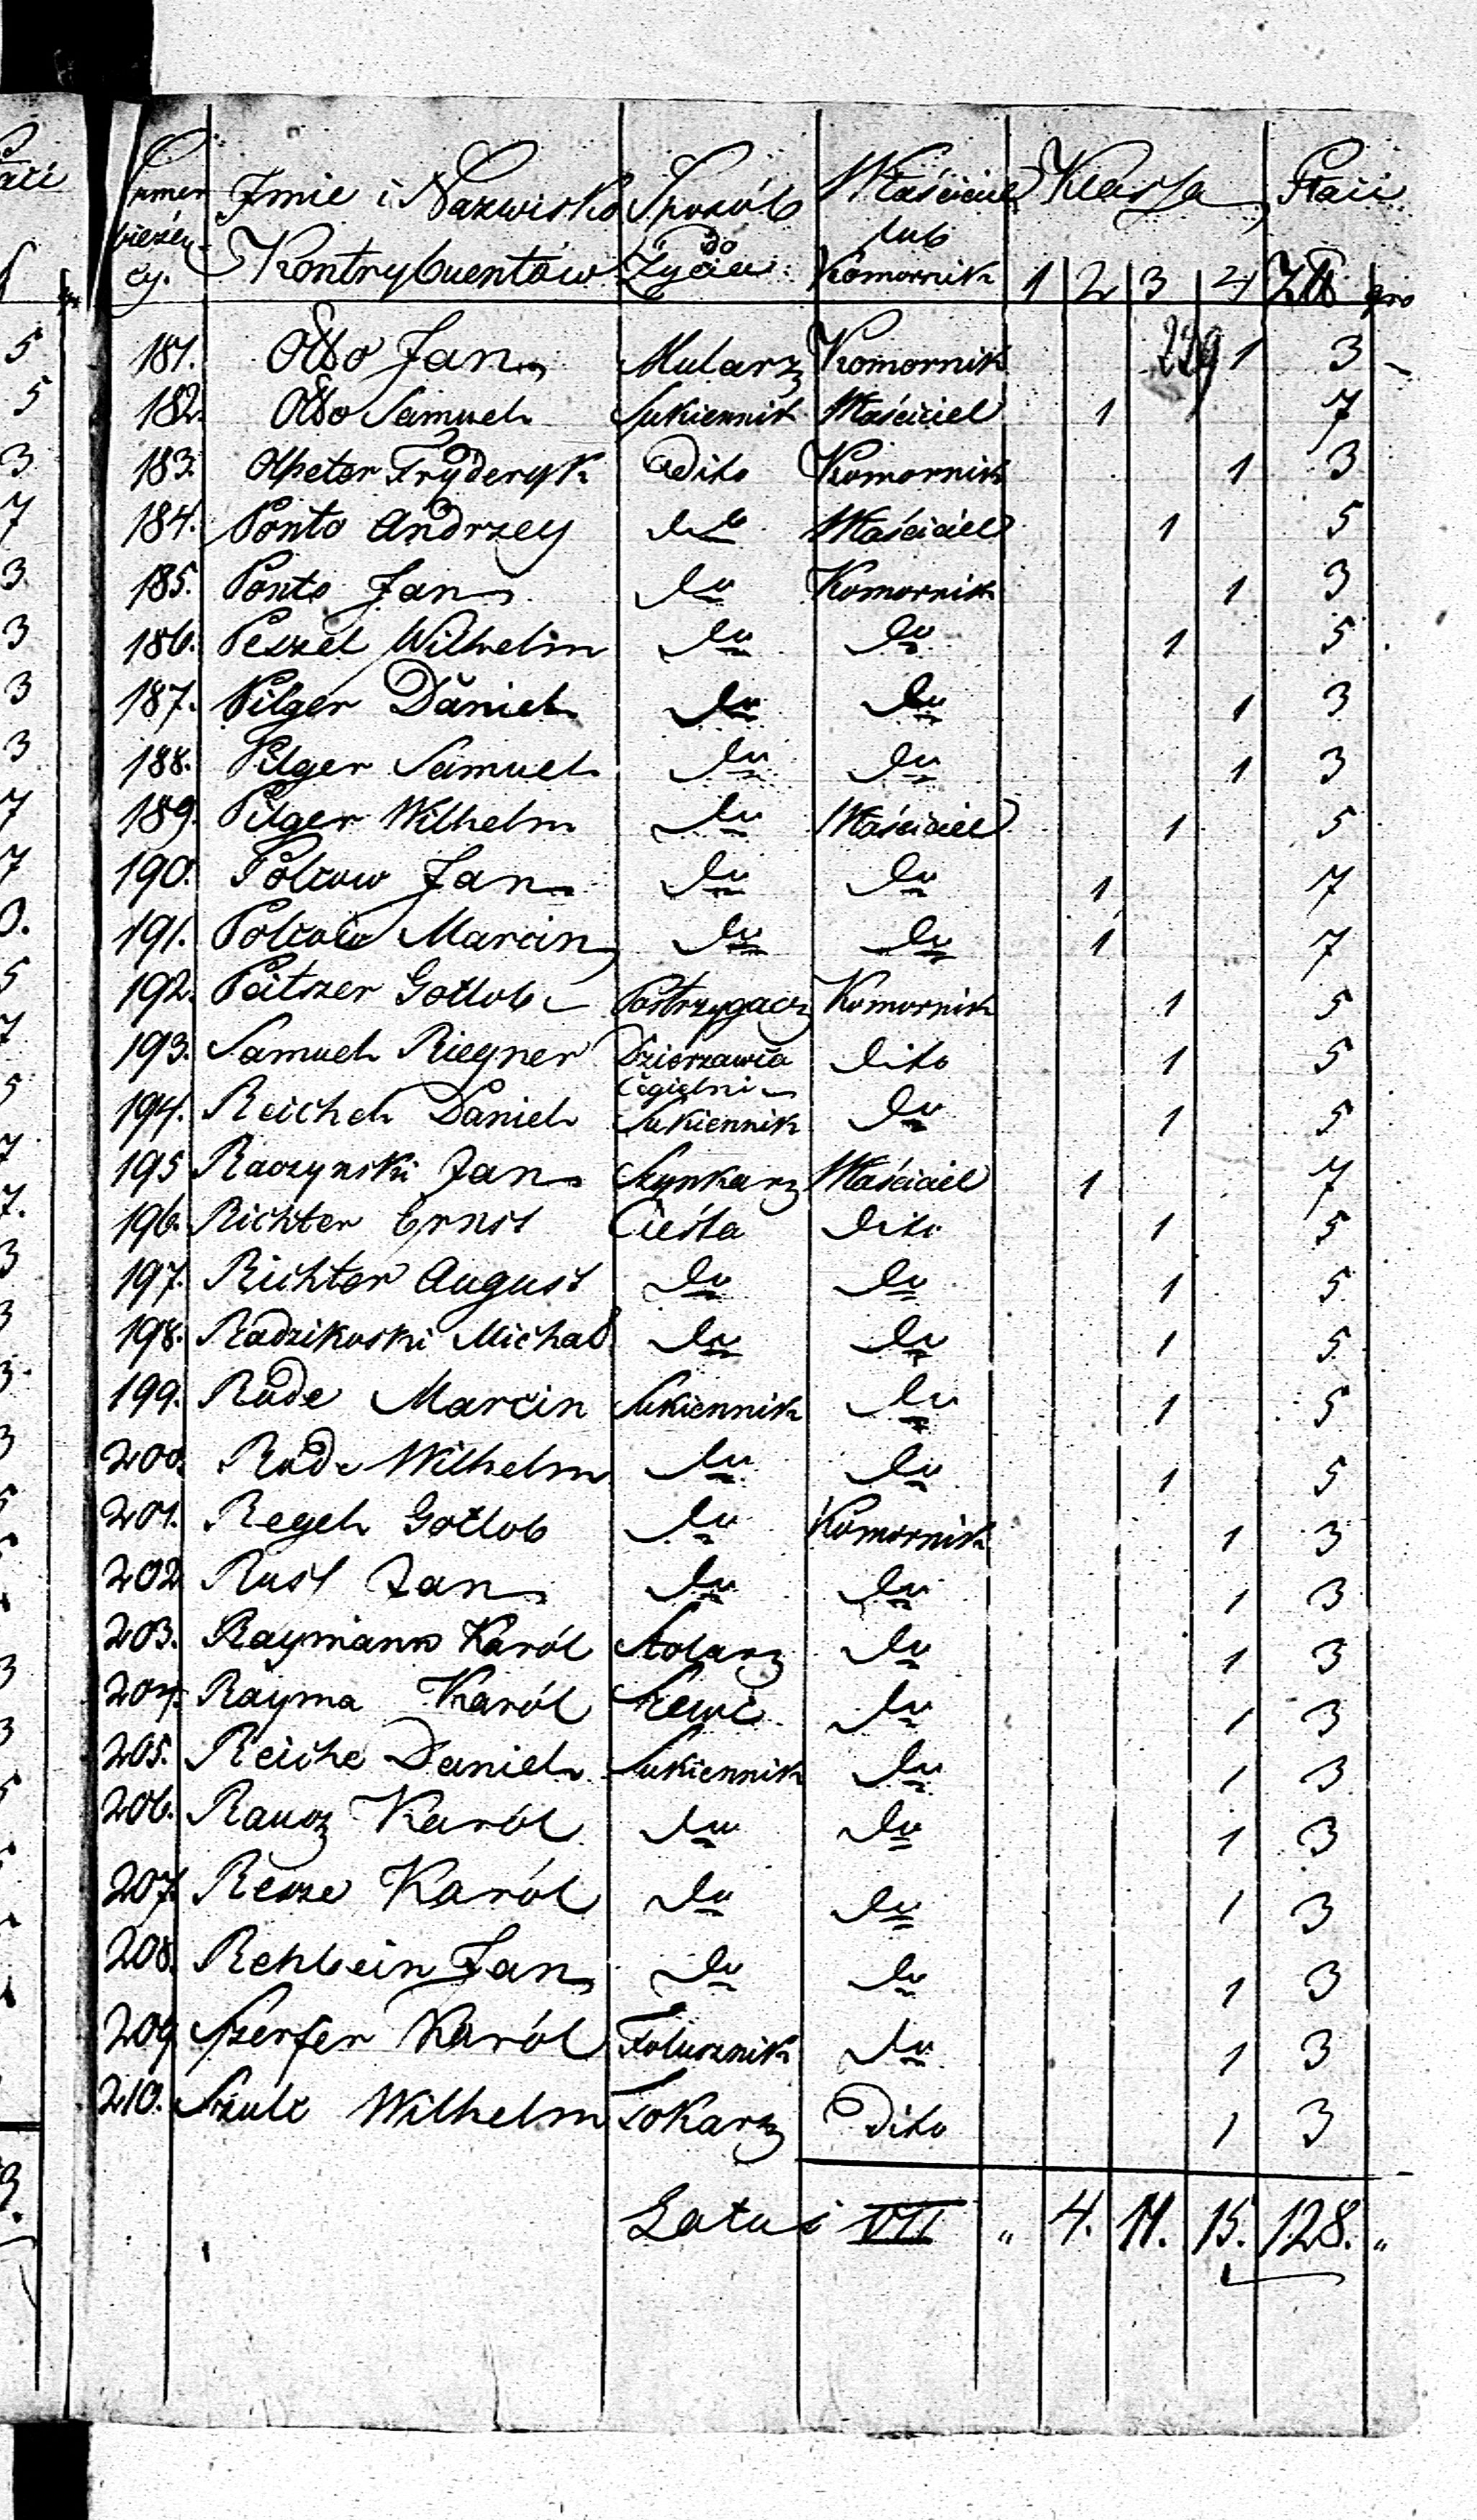 Numer Imie i Nazwisko Sposób Właściciel Klassa Płaci
bieżą- lub
cy. Kontrybuentów do Życia Komornik 1 2 3 4 Złł gro
181. Otto Jan Mularz Komornik 229 1 3 -
182. Otto Samuel Sukiennik Właściciel 1 7
183. Olpeter Fryderyk Dito Komornik 1 3
184. Ponto Andrzey do Właściciel 1 5
185. Ponto Jan do Komornik 1 3
186. Peszel Wilhelm do do 1 5
187. Pilger Daniel do do 1 3
188. Pilger Samuel do do 1 3
189. Pilger Wilhelm do Właściciel 1 5
190. Polcow Jan do do 1 7
191. Polcow Marcin do do 1 7
192. Peitszer Gotlob Postrzygacz Komornik 1 5
193. Samuel Riegner Dzierzawca dito 1 5
Cegielni
194. Reichel Daniel Sukiennik do 1 5
195 Raczynski Jan Szynkarz Właściciel 1 7
196. Richter Ernst Cieśla dito 1 5
197. Richter August do do 1 5
198. Radzikoski Michał do do 1 5
199. Rode Marcin Sukiennik do 1 5
200. Rode Wilhelm do do 1 5
201. Regel Gotlob do Komornik 1 3
202 Rust Jan do do 1 3
203. Raymann Karól Stolarz do 1 3
204. Rayma Karól Szewc do 1 3
205. Reiche Daniel Sukiennik do 1 3
206. Rausz Karól do do 1 3
207. Resze Karól do do 1 3
208. Rehbein Jan do do 1 3
209 Szerfer Karól Folusznik do 1 3
210. Szulc Wilhelm Tokarz Dito 1 3
Latus VII " 4. 11. 15. 128. "